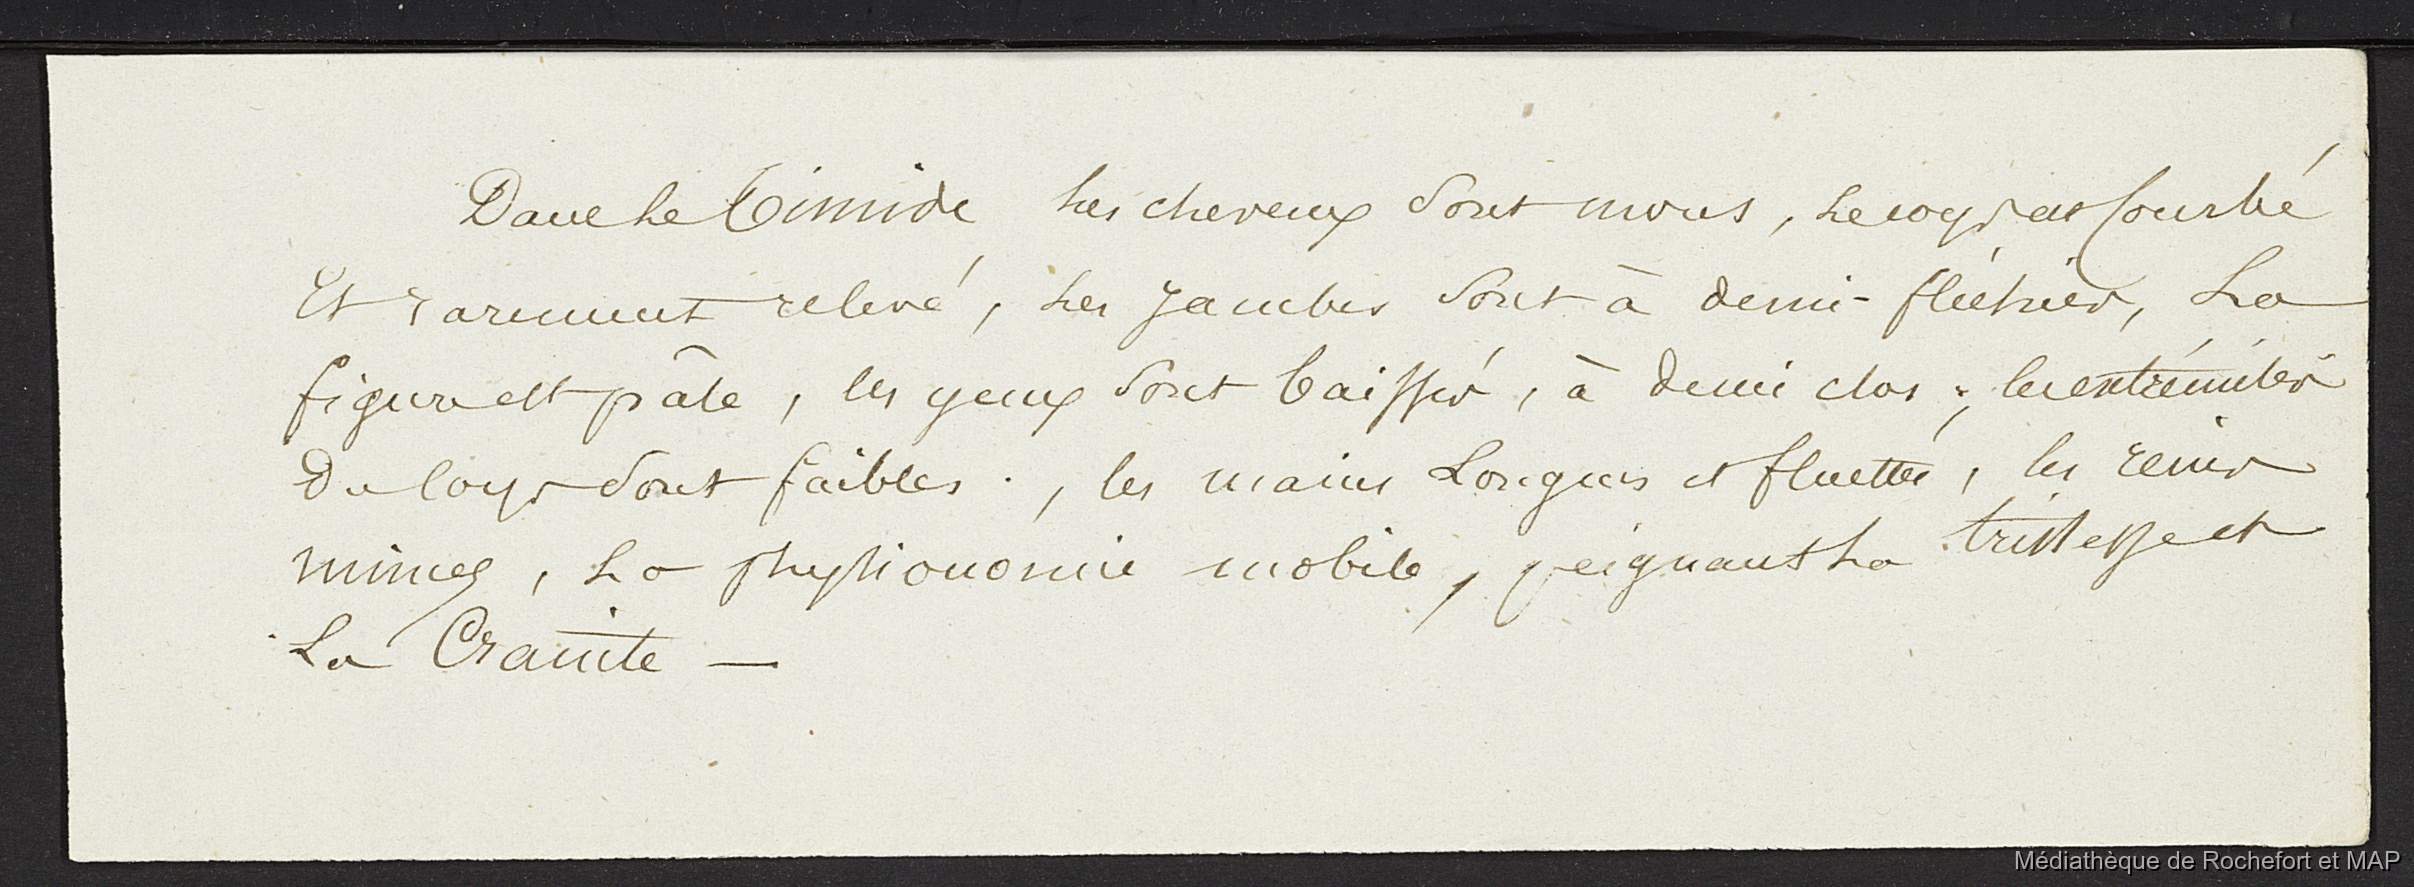 Dans le timide les cheveux sont mous, le corps est courbé
Et rarement relevé, les jambes sont à demi-fléchies, La
figure est pâle, les yeux sont baissés, à demi clos ; les extrémités
Du corps sont faibles . , les mains Longues et fluettes, les reins
minces, La physionomie mobile, peignant La tristesse et
La Crainte —
Médiathèque de Rochefort et MAP